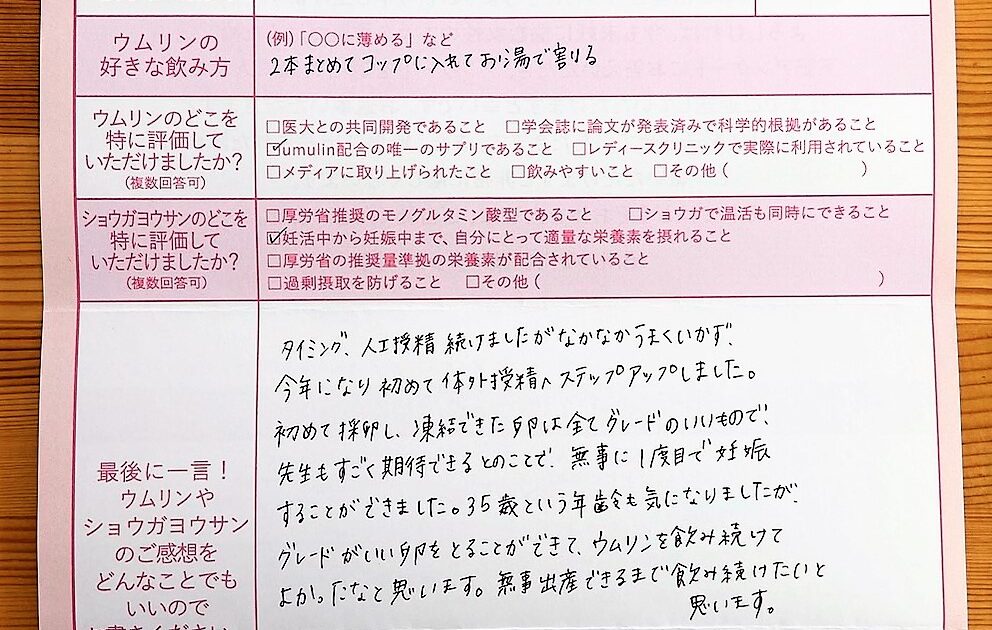 ウムリンの
好きな飲み方
(例)「〇〇に薄める」など
2本まとめてコップに入れてお湯で割る
ウムリンのどこを
特に評価して
いただけましたか?
(複数回答可)
□医大との共同開発であること □学会誌に論文が発表済みで科学的根拠があること
☑umulin配合の唯一のサプリであること □レディースクリニックで実際に利用されていること
□メディアに取り上げられたこと □飲みやすいこと □その他( )
ショウガヨウサンのどこを
特に評価して
いただけましたか?
(複数回答可)
□厚労省推奨のモノグルタミン酸型であること □ショウガで温活も同時にできること
☑妊活中から妊娠中まで、自分にとって適量な栄養素を摂れること
□厚労省の推奨量準拠の栄養素が配合されていること
□過剰摂取を防げること □その他( )
最後に一言!
ウムリンや
ショウガヨウサン
のご感想を
どんなことでも
いいので
タイミング、人工授精 続けましたがなかなかうまくいかず、
今年になり初めて体外授精へステップアップしました。
初めて採卵し、凍結できた卵は全てグレードのいいもので、
先生もすごく期待できるとのことで、無事に1度目で妊娠
することができました。35歳という年齢も気になりましたが、
グレードがいい卵をとることができて、ウムリンを飲み続けて
よかったなと思います。無事出産できるまで飲み続けたいと
思います。